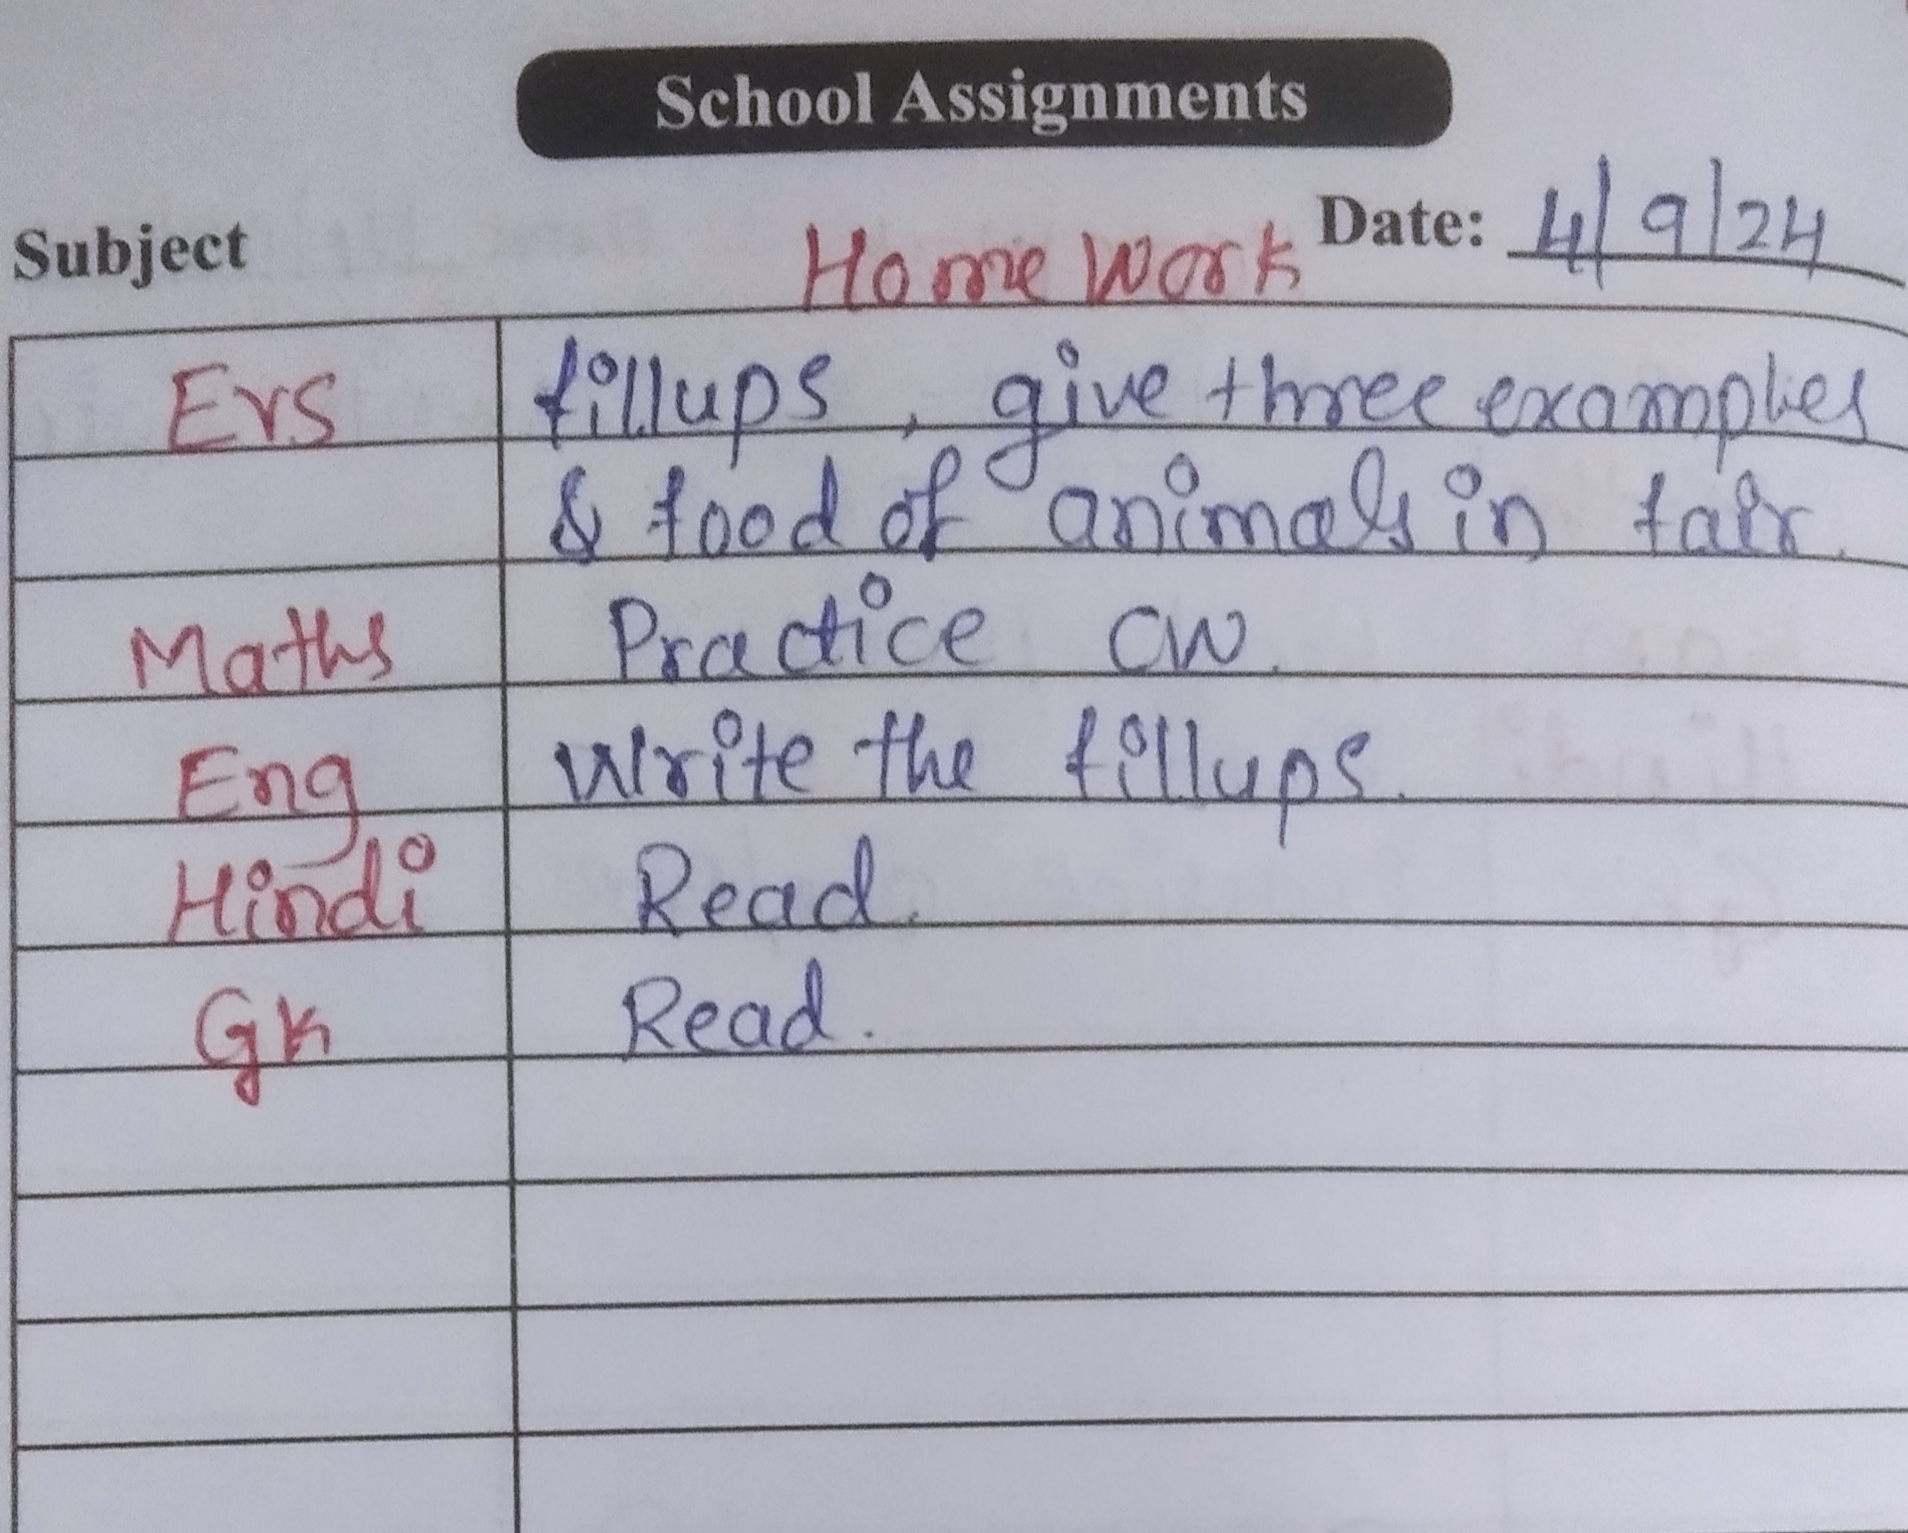 School Assignments
Subject Home Work Date: 4/9/24
Evs fillups, give three examples
& food of animals in fair.
Maths Practice CW.
Eng Write the fillups.
Hindi Read.
Gk Read.